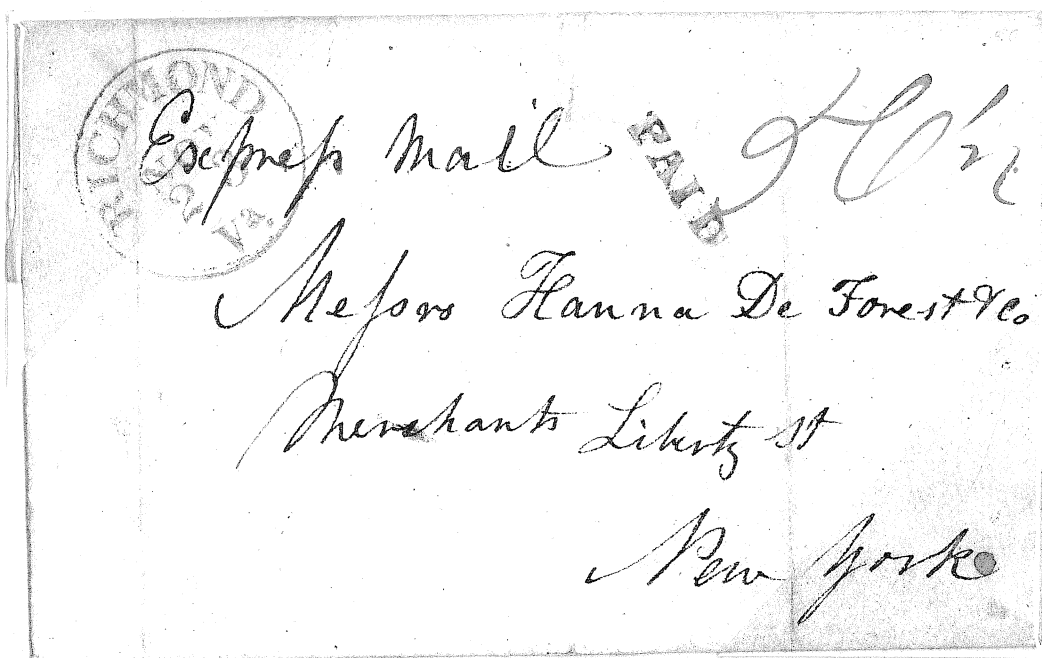 RICHMOND
Va.
Expreſs Mail
PAID
Meſsrs Hanna De Forest & Co
Merchants Liberty St
New York